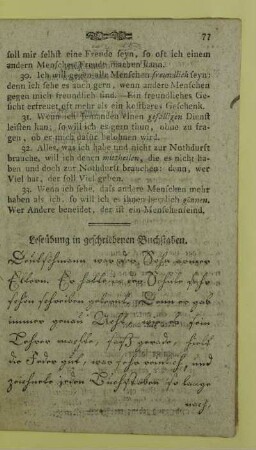 77
soll mir selbst eine Freude seyn, so oft ich einem
andern Menschen Freude machen kann.
30. Ich will gegen alle Menschen freundlich seyn;
denn ich sehe es auch gern, wenn andere Menschen
gegen mich freundlich sind. Ein freundliches Ge-
sicht erfreuet oft mehr als ein kostbares Geschenk.
31. Wenn ich jemanden einen gefälligen Dienst
leisten kan, so will ich es gern thun, ohne zu fra-
gen, ob er mich dafür belohnen wird.
32. Alles, was ich habe und nicht zur Nothdurft
brauche, will ich denen mittheilen, die es nicht ha-
ben und doch zur Nothdurft brauchen: denn, wer
Viel hat, der soll Viel geben.
33. Wenn ich sehe, daß andere Menschen mehr
haben als ich, so will ich es ihnen herzlich gönnen.
Wer Andere beneidet, der ist ein Menschenfeind.
Leseübung in geschriebenen Buchstaben.
Deutschmann war der Sohn armer
Eltern. Er hatte in der Schule sehr
schön schreiben gelernt. Denn er gab
immer genau Acht, wie es sein
Lehrer machte, saß gerade, hielt
die Feder gut, war sehr reinlich, und
zeichnete jeden Buchstaben so lange
nach,